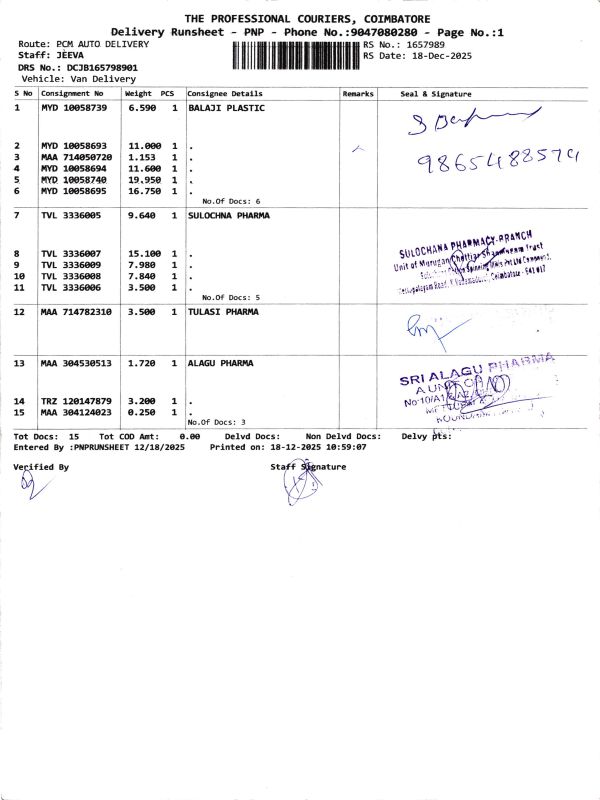 THE PROFESSIONAL COURIERS, COIMBATORE
Delivery Runsheet - PNP - Phone No.:9047080280 - Page No.:1
Route: PCM AUTO DELIVERY RS No.: 1657989
Staff: JEEVA RS Date: 18-Dec-2025
DRS No.: DCJB165798901
Vehicle: Van Delivery
S No Consignment No Weight PCS Consignee Details Remarks Seal & Signature
1 MYD 10058739 6.590 1 BALAJI PLASTIC
2 MYD 10058693 11.000 1 .
3 MAA 714050720 1.153 1 .
4 MYD 10058694 11.600 1 .
5 MYD 10058740 19.950 1 .
6 MYD 10058695 16.750 1 .
9865488574
No.Of Docs: 6
7 TVL 3336005 9.640 1 SULOCHNA PHARMA
8 TVL 3336007 15.100 1 .
9 TVL 3336009 7.980 1 .
10 TVL 3336008 7.840 1 .
11 TVL 3336006 3.500 1 .
SULOCHANA PHARMACY-BRANCH
Unit of Murugan Chettiar Trust
Coimbatore - 641 017
No.Of Docs: 5
12 MAA 714782310 3.500 1 TULASI PHARMA
13 MAA 304530513 1.720 1 ALAGU PHARMA
14 TRZ 120147879 3.200 1 .
15 MAA 304124023 0.250 1 .
SRI ALAGU PHARMA
No.Of Docs: 3
Tot Docs: 15 Tot COD Amt: 0.00 Delvd Docs: Non Delvd Docs: Delvy pts:
Entered By :PNPRUNSHEET 12/18/2025 Printed on: 18-12-2025 10:59:07
Verified By Staff Signature